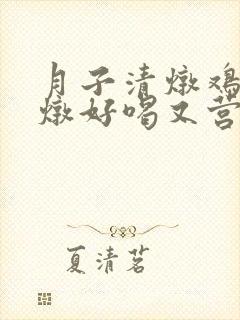 月子清燉鸡
燉好喝又营
夏清茗